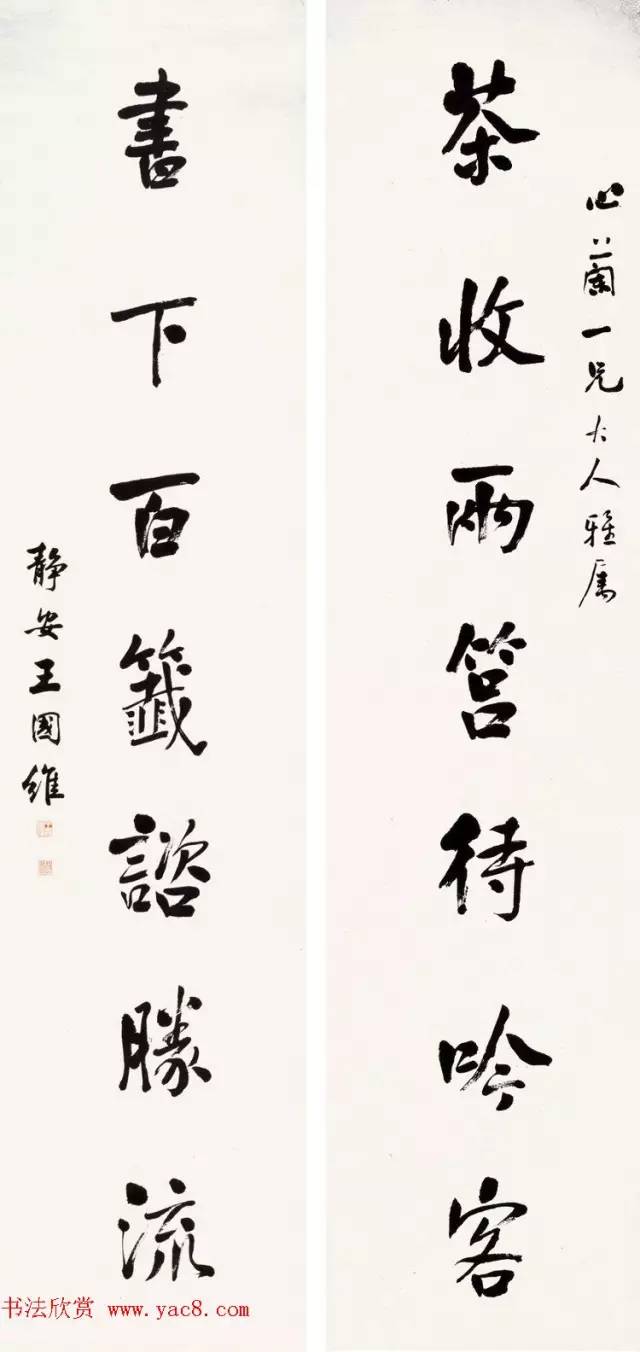 心蘭一兄大人雅属
茶收兩筥待吟客
書下百籤諮勝流
静安王國維
书法欣赏 www.yac8.com